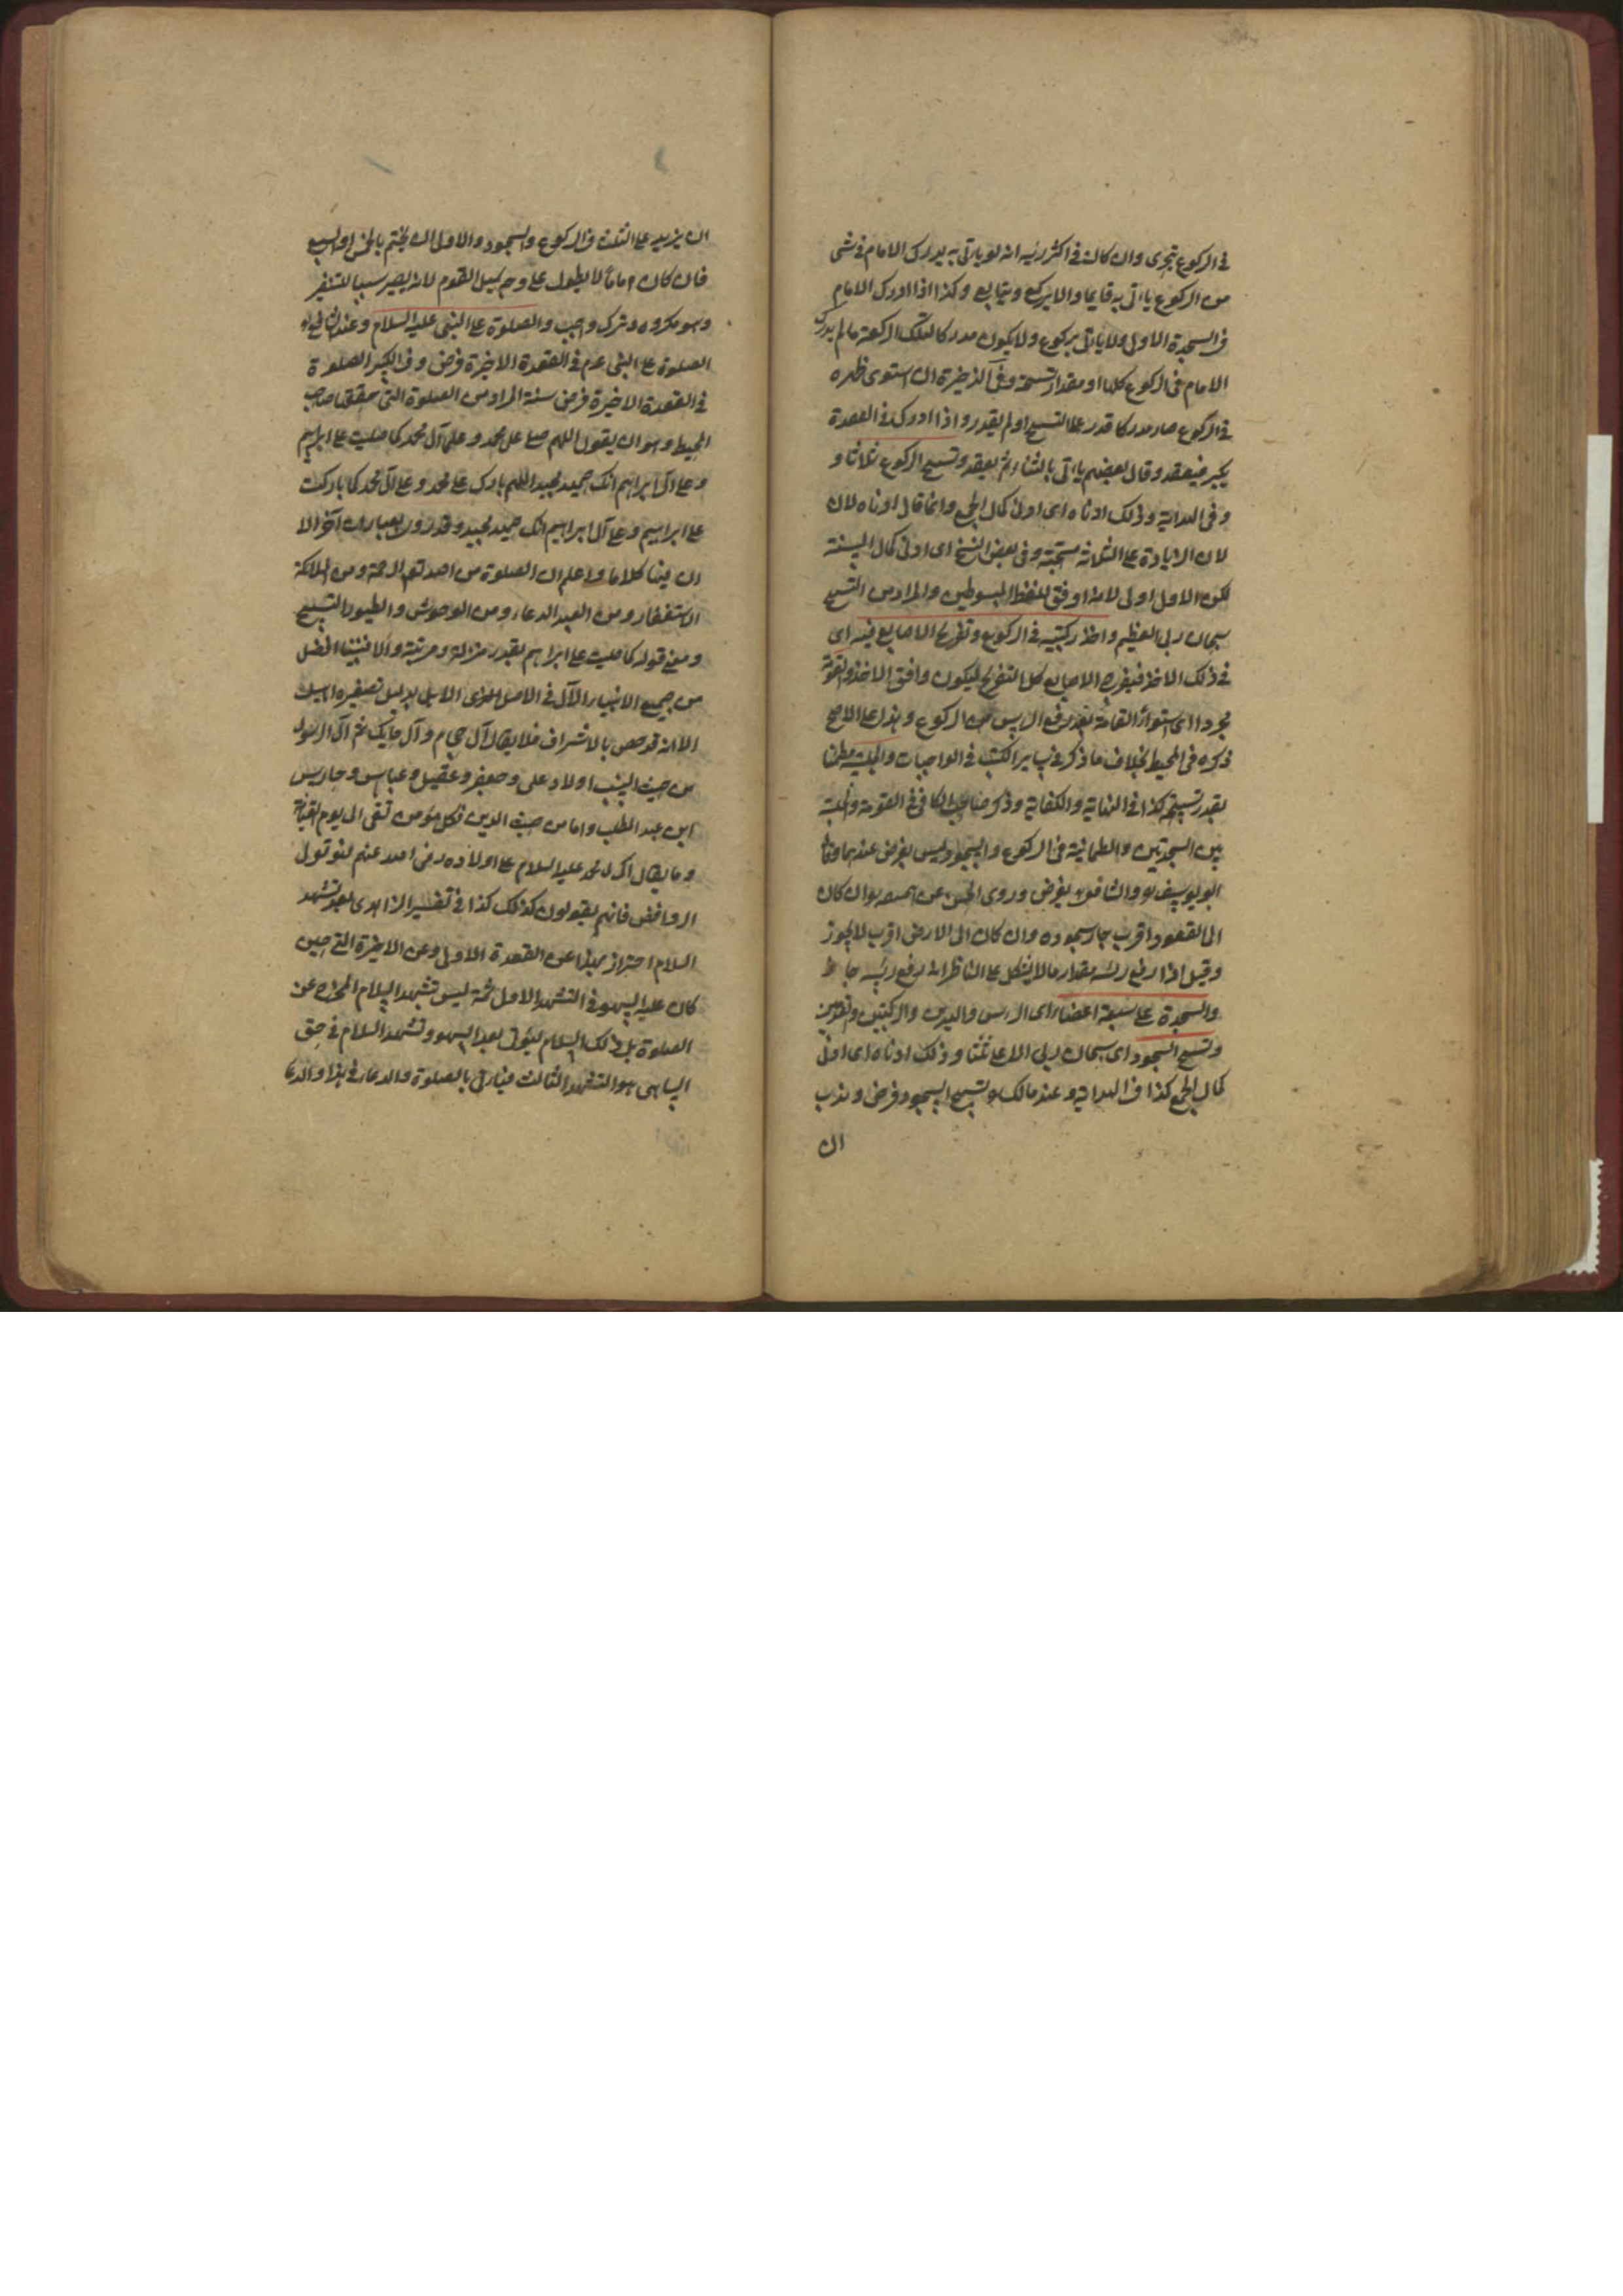 في الركوع يتحرى وان كان في اكثر رأيه انه لو ياتي به يدرك الامام في شئ
من الركوع ياتي به قايما والا يركع ويتابع وكذا اذا ادرك الامام
في السجدة الاولى ولا ياتي بركوع ولا يكون مدركا لتلك الركعة مالم يدرك
الامام في الركوع كلها او مقدار تسبيحة وفي الذخيرة ان استوى ظهره
في الركوع صار مدركا قدر على التسبيح او لم يقدر واذا ادرك في القعدة
يكبر فيقعد وقال بعضهم ياتي بالثناء ثم يقعد وتسبيح الركوع ثلاثا و
وفي الهداية وذلك ادناه اى ادنى كمال الجمع وانما قال ادناه لان
لان الزيادة على الثلاثة مستحبة وفي بعض النسخ اى ادنى كمال السنة
لكن الاول اولى لانه اوفق للفظ المبسوطين والمراد من التسبيح
سبحان ربى العظيم واخذ ركبتيه في الركوع وتفريج الاصابع فيه اى
في ذلك الاخذ فيفرج الاصابع كل التفريج ليكون وافق الاخذ والقومة
مجرد اى استواء القامة بعد رفع الراس من الركوع وهذا على الاصح
ذكره في المحيط بخلاف ما ذكر في ساير الكتب في الواجبات والجلسة مطمئنا
بقدر تسبيحة كذا في النهاية والكفاية وذكر صاحب الكافي في القومة والجلسة
بين السجدتين والطمانينة في الركوع والسجود ليس بفرض عندهما وقال
ابو يوسف والشافعي يفرض وروى الحسن عن ان كان
الى القعود اقرب جاز سجوده وان كان الى الارض اقرب لا يجوز
وقيل اذا رفع رأسه مقدار ما لا يشكل على الناظر انه رفع رأسه جاز
والسجدة على سبعة اعضاء اى الراس واليدين والركبتين والقدمين
وتسبيح السجود اى سبحان ربى الاعلى ثلثا وذلك ادناه اى ادنى
كمال الجمع كذا في الهداية وعند مالك تسبيح السجود فرض وندب
ان
ان يزيد على الثلث في الركوع والسجود والاولى ان يختم بالخمس او السبع
فان كان اماما لا يطول على وجه يمل القوم لانه يصير سببا للتنفير
وهو مكروه وترك واجب والصلوة على النبى عليه السلام وعند الشافعي
الصلوة على النبى عم في القعدة الاخيرة فرض وفي الكبير الصلوة
في القعدة الاخيرة فرض سنة المراد من الصلوة التى حققها صاحب
المحيط وهو ان يقول اللهم صل على محمد وعلى آل محمد كما صليت على ابراهيم
وعلى آل ابراهيم انك حميد مجيد اللهم بارك على محمد وعلى آل محمد كما باركت
على ابراهيم وعلى آل ابراهيم انك حميد مجيد وقد ورد بعبارات آخر الا
ان فيها كلاما واعلم ان الصلوة من الله تعالى الرحمة ومن الملائكة
الاستغفار ومن العبد الدعاء ومن الوحوش والطيور التسبيح
ومعنى قوله كما صليت على ابراهيم بقدر منزلة ومرتبة والا فنبينا افضل
من جميع الانبياء الآل في الاصل الاهل بدليل تصغيره اهيل
الا انه قد خص بالاشراف فلا يقال آل حجام وآل حايك ثم آل الرسول
من حيث النسب اولاد على وجعفر وعقيل وعباس وحارث
ابن عبد المطلب واما من حيث الدين فكل مؤمن تقى الى يوم القيامة
وما يقال آل محمد عليه السلام على اولاده رضى الله عنهم فهو قول
الروافض فانهم يقولون كذلك كذا في تفسير الزاهدى بعد تشهد
السلام احتراز بهذا عن القعدة الاولى وعن الاخيرة التى حين
كان عليه السهو في التشهد الاول ثمة ليس تشهد السلام المخرج عن
الصلوة بل ذلك السلام ليؤتى بعد السهو وتشهد السلام في حق
الساهى هو التشهد الثالث فياتى بالصلوة والدعاء في هذا والدعا